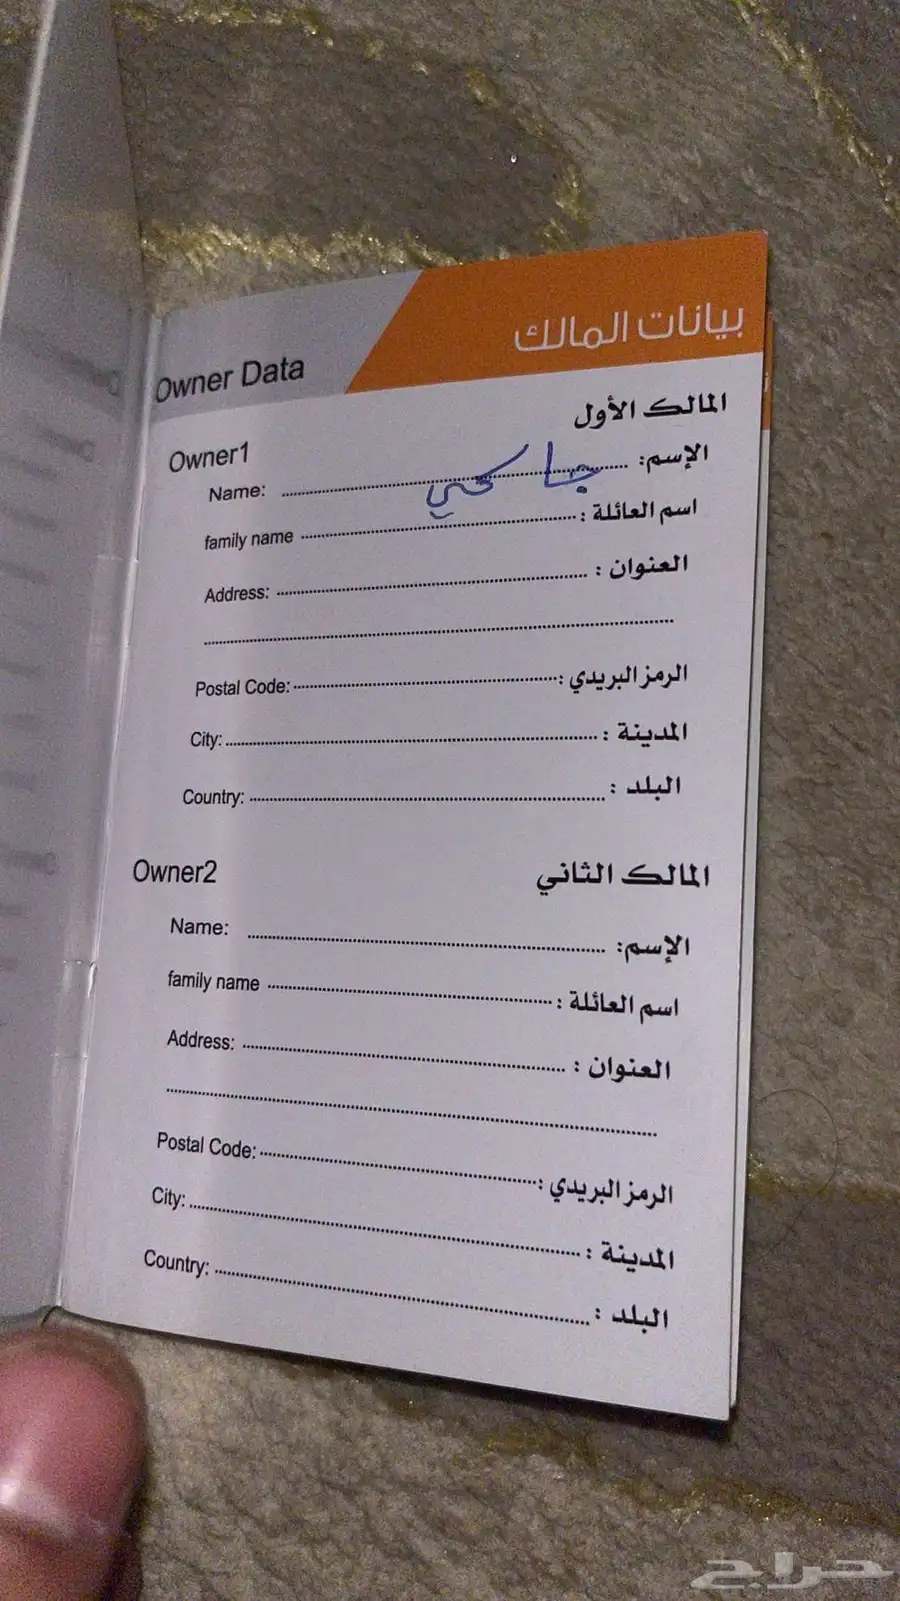 Owner Data بيانات المالك
Owner1 المالك الأول
Name: جاكي الإسم:
family name اسم العائلة :
Address: العنوان :
Postal Code: الرمز البريدي :
City: المدينة :
Country: البلد :
Owner2 المالك الثاني
Name: الإسم:
family name اسم العائلة :
Address: العنوان :
Postal Code: الرمز البريدي :
City: المدينة :
Country: البلد :
حراج